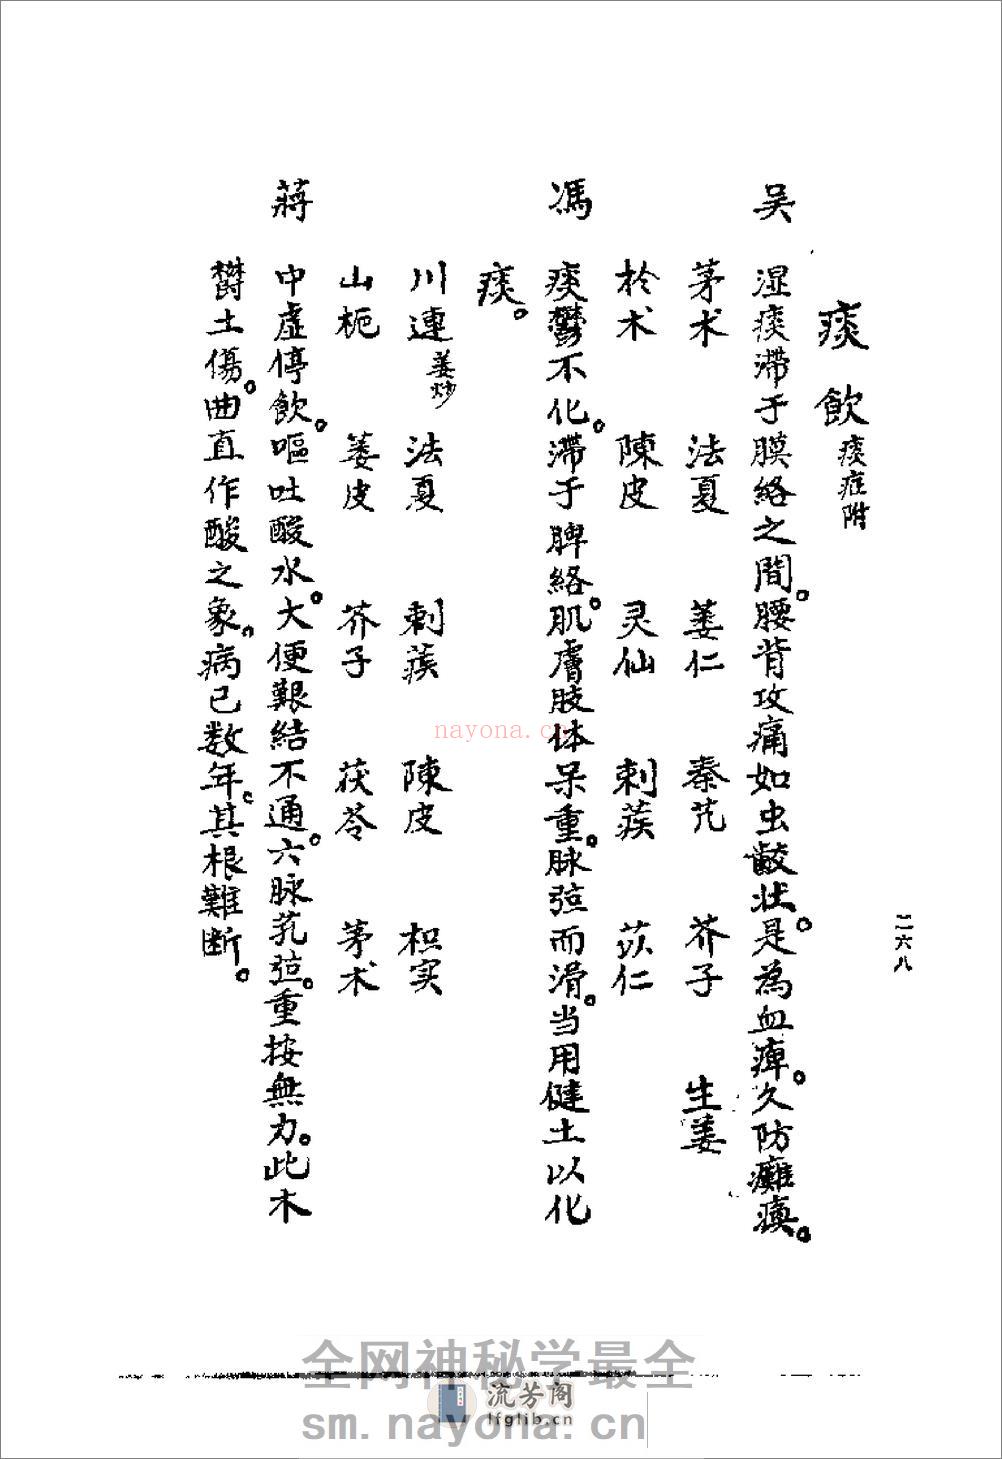 二六八
痰飲 痰症附
吴 湿痰滞于膜絡之間。腰背攻痛如虫齩状。是為血痺。久防癱瘓。
茅术 法夏 蒌仁 秦艽 芥子 生姜
於术 陳皮 灵仙 刺蒺 苡仁
馮 痰鬱不化。滞于脾絡。肌膚肢体呆重。脉弦而滑。当用健土以化
痰。
川連姜炒 法夏 刺蒺 陳皮 枳实
山栀 蒌皮 芥子 茯苓 茅术
蔣 中虚停飲。嘔吐酸水。大便艱結不通。六脉芤弦。重按無力。此木
欝土傷。曲直作酸之象。病已数年。其根難断。
nayona.cn
全网神秘学最全
流芳阁
lfglib.cn
sm.nayona.cn